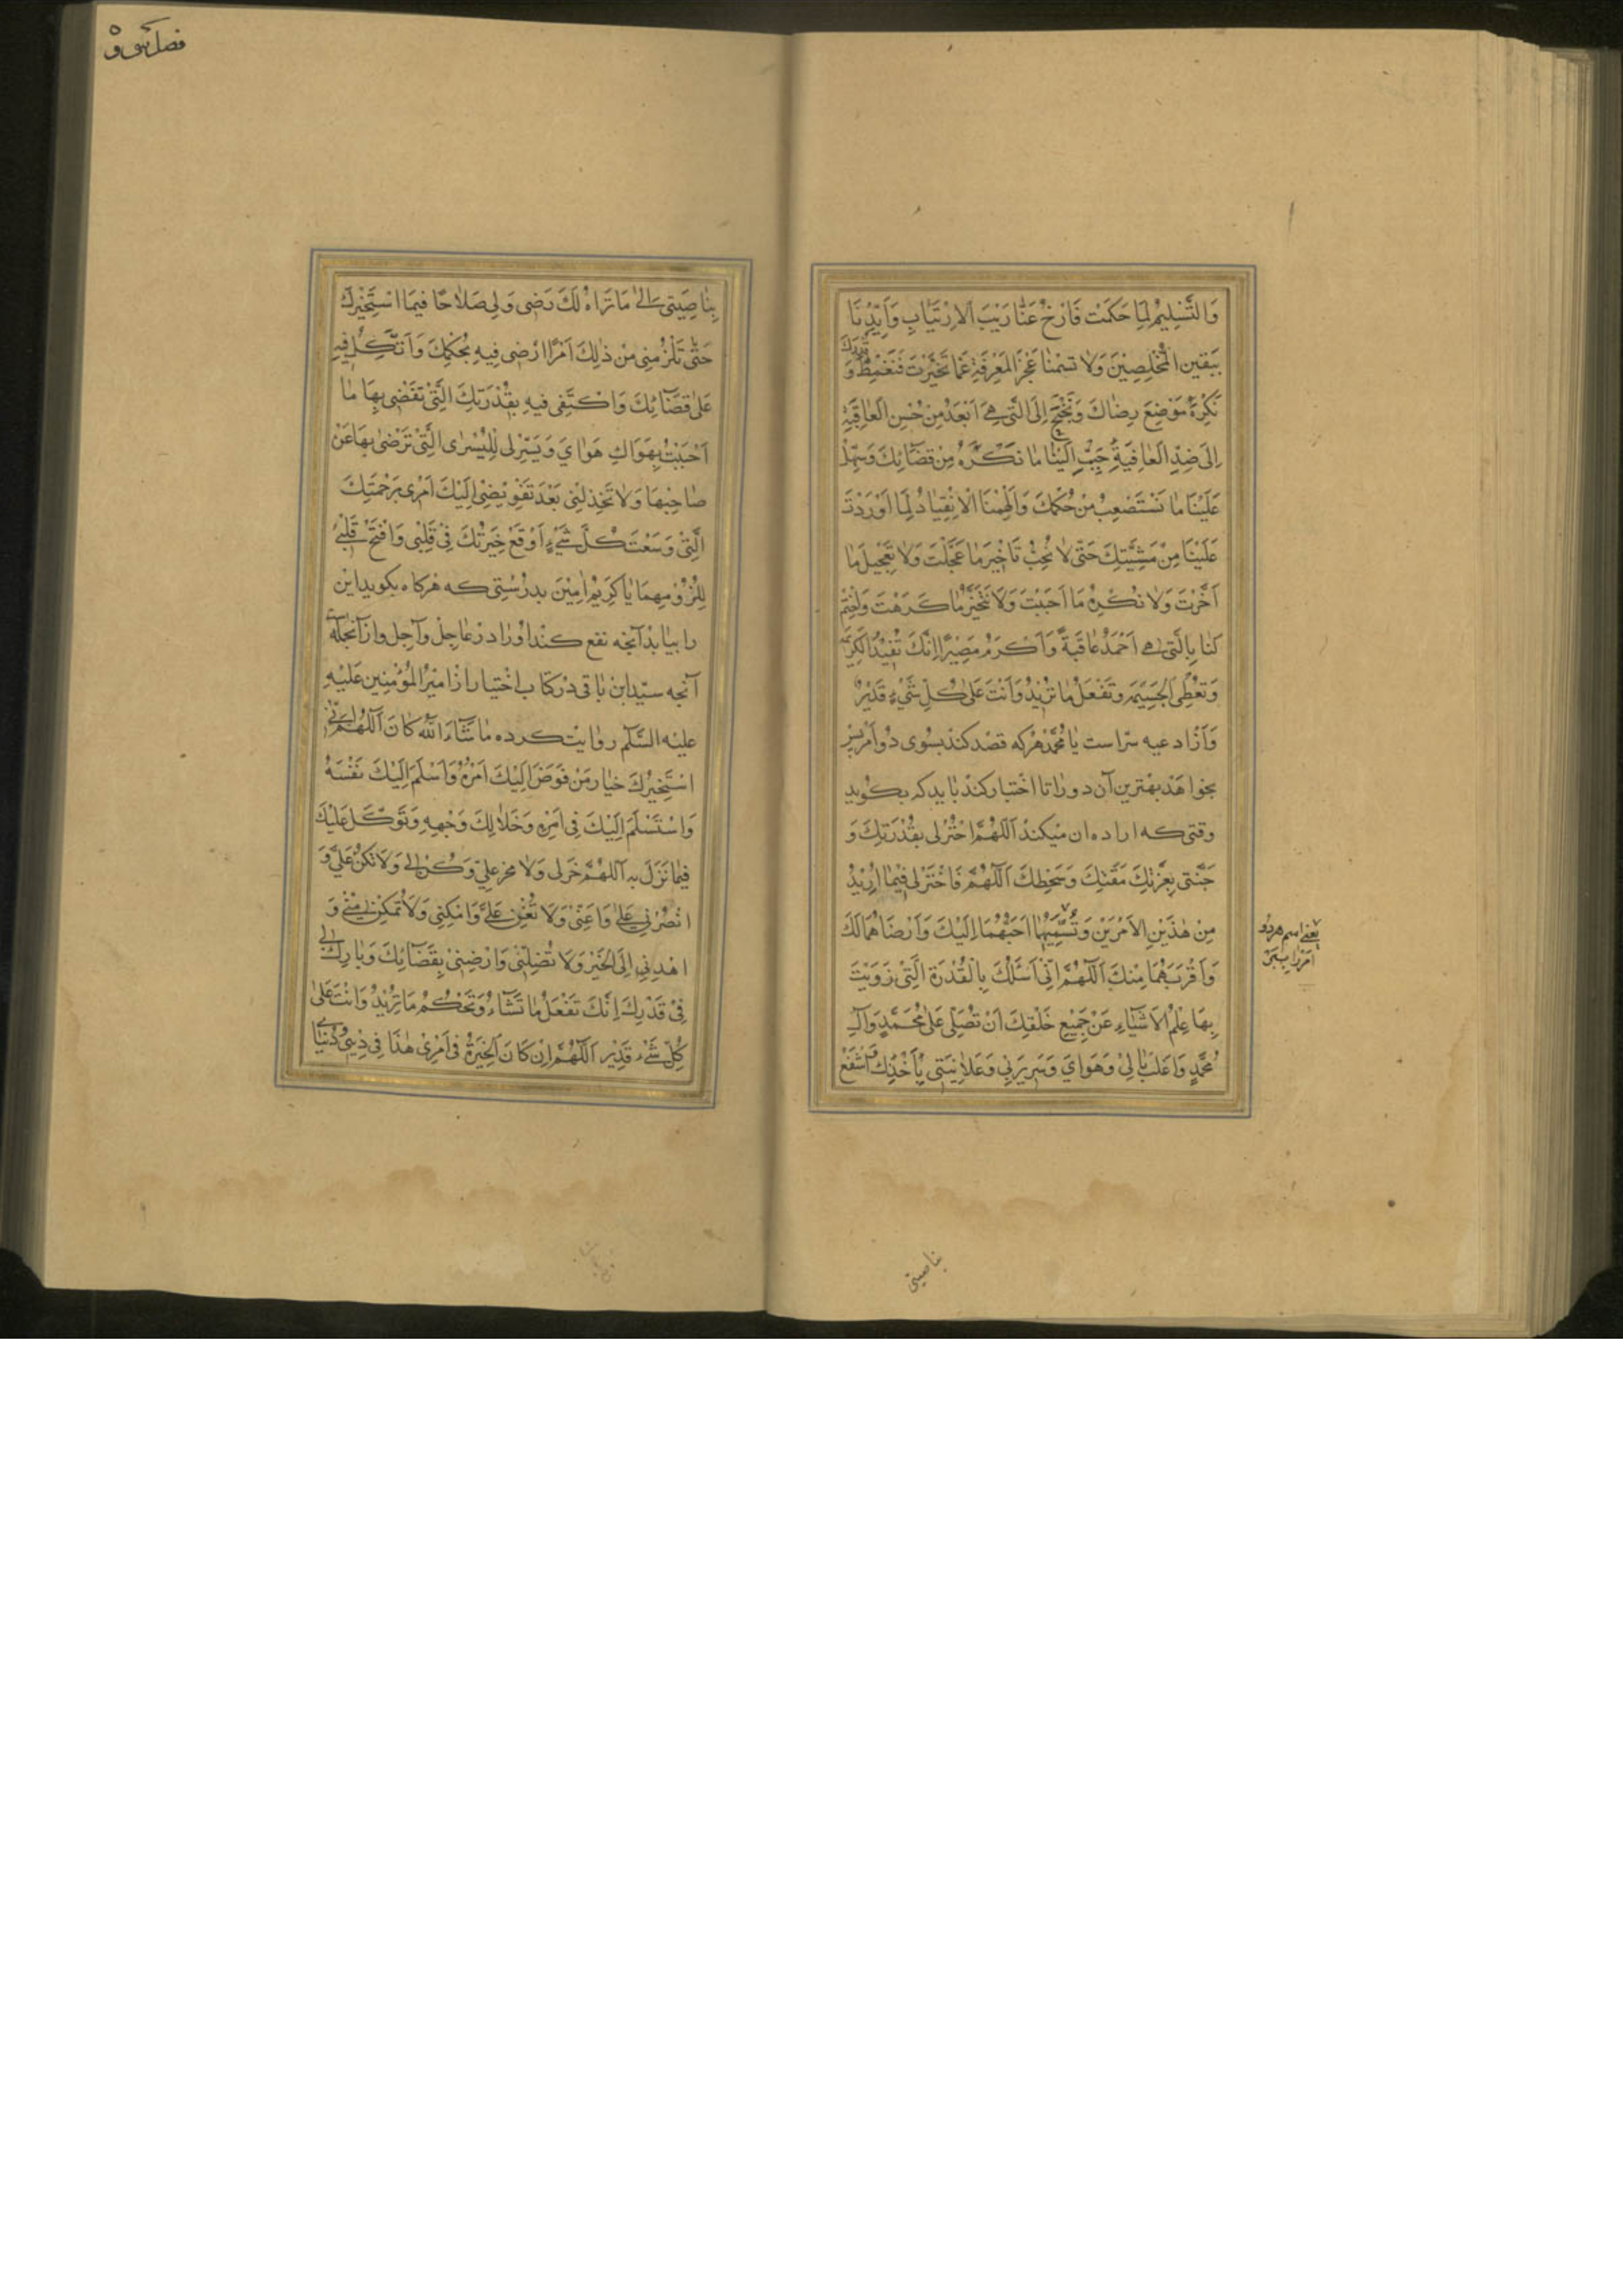 وَالتَّسْلِيمُ لِمَا حَكَمْتَ فَازِحْ عَنَّا رَيْبَ الْاِرْتِيَابِ وَاَيِّدْنَا
بِيَقينِ الْمُخْلِصينَ وَلَا تَسُمْنَا عَجْزَ الْمَعْرِفَةِ عَمَّا تَخَيَّرْتَ فَنَغْمِطُ قَدْرَكَ وَ
نَكْرَهُ مَوْضِعَ رِضَاكَ وَنَجْنَحُ اِلَى الَّتى هِىَ اَبْعَدُ مِنْ حُسْنِ الْعَاقِبَةِ
اِلىٰ ضِدِّ الْعَافِيَةِ حَبِّبْ اِلَيْنَا مَا نَكْرَهُ مِنْ قَضَائِكَ وَسَهِّلْ
عَلَيْنَا مَا نَسْتَصْعِبُ مِنْ حُكْمِكَ وَاَلْهِمْنَا الْاِنْقِيَادَ لِمَا اَوْرَدْتَ
عَلَيْنَا مِنْ مَشِيَّتِكَ حَتّى لَا نُحِبَّ تَاْخِيرَ مَا عَجَّلْتَ وَلَا تَعْجِيلَ مَا
اَخَّرْتَ وَلَا نَكْرَهَ مَا اَحْبَبْتَ وَلَا نَتَخَيَّرَ مَا كَرِهْتَ وَاخْتِمْ
لَنَا بِالَّتى هِىَ اَحْمَدُ عَاقِبَةً وَاَكْرَمُ مَصِيرًا اِنَّكَ تُفِيدُ الْكَرِيمَةَ
وَتُعْطِى الْجَسِيمَةَ وَتَفْعَلُ مَا تُرِيدُ وَاَنْتَ عَلىٰ كُلِّ شَىْءٍ قَدِيرٌ
وَاَزْ ادعیه سرّ است یا مُحَمَّدُ هرکه قصد کند بسوی دو امر پس
بخواهد بهترین آن دو را تا اختیار کند باید که بگوید
وقتی که اراده ان میکند اَللّٰهُمَّ اخْتَرْ لى بِقُدْرَتِكَ وَ
جَنِّبْنى بِعِزَّتِكَ مَقْتَكَ وَسَخَطَكَ اَللّٰهُمَّ فَاخْتَرْ لى فِيمَا اُرِيدُ
مِنْ هٰذَيْنِ الْاَمْرَيْنِ وَتُسَمِّيهِمَا اَحَبَّهُمَا اِلَيْكَ وَاَرْضَاهُمَا لَكَ
وَاَقْرَبَهُمَا مِنْكَ اَللّٰهُمَّ اِنّى اَسْئَلُكَ بِالْقُدْرَةِ الَّتى زَوَيْتَ
بِهَا عِلْمَ الْاَشْيَاءِ عَنْ جَمِيعِ خَلْقِكَ اَنْ تُصَلِّىَ عَلىٰ مُحَمَّدٍ وَآلِ
مُحَمَّدٍ وَاغْلِبْ بَالى وَهَوَاىَ وَسَرِيرَتى وَعَلَانِيَتى بِاَخْذِكَ وَاسْفَعْ
یعنی اسم هر دو
امر را ببر
بناصیتی
فصل سی و ٥
بِنَاصِيَتى اِلىٰ مَا تَرَاهُ لَكَ رَضِىً وَلِى صَلَاحًا فِيمَا اسْتَخِيرُكَ
حَتّى تُلْزِمَنى مِنْ ذٰلِكَ اَمْرًا اَرْضىٰ فِيهِ بِحُكْمِكَ وَاَتَّكِلُ فِيهِ
عَلىٰ قَضَائِكَ وَاَكْتَفِى فيهِ بِقُدْرَتِكَ الَّتِى تَقْضى بِهَا مَا
اَحْبَبْتَ بِهَوَاكَ هَوَاىَ وَيَسِّرْ لى لِلْيُسْرَى الَّتى تَرْضىٰ بِهَا عَنْ
صَاحِبِهَا وَلَا تَخْذُلْنى بَعْدَ تَفْوِيضِى اِلَيْكَ اَمْرى بِرَحْمَتِكَ
الَّتِى وَسِعَتْ كُلَّ شَىْءٍ اَوْقِعْ خِيَرَتَكَ فِى قَلْبى وَافْتَحْ قَلْبى
لِلُزُومِهَا يَا كَرِيمُ اٰمِينَ بدرستی که هرکاه بکوید این
را بیابد آنچه نفع کند او را در عاجل وآجل واز آنجمله است
آنچه سیّد ابن باقی در کتاب اختیار از امیرُالمُؤْمِنِینَ عَلَیْهِ
علیه السّلٰم روایت کرده مَا شَاءَ اللّٰهُ كَانَ اَللّٰهُمَّ اِنّى
اَسْتَخِيرُكَ خِيَارَ مَنْ فَوَّضَ اِلَيْكَ اَمْرَهُ وَاَسْلَمَ اِلَيْكَ نَفْسَهُ
وَاسْتَسْلَمَ اِلَيْكَ فِى اَمْرِهِ وَخَلَا لَكَ وَجْهَهُ وَتَوَكَّلَ عَلَيْكَ
فِيمَا نَزَلَ بِهِ اَللّٰهُمَّ خِرْ لى وَلَا تَخِرْ عَلَىَّ وَكُنْ لى وَلَا تَكُنْ عَلَىَّ وَ
انْصُرْنى وَلَا تَنْصُرْ عَلَىَّ وَاَعِنّى وَلَا تُعِنْ عَلَىَّ وَاَمْكِنّى وَلَا تُمَكِّنْ مِنّى وَ
اهْدِنِى اِلَى الْخَيْرِ وَلَا تُضِلَّنى وَارْضِنى بِقَضَائِكَ وَبَارِكْ لِى
فِى قَدَرِكَ اِنَّكَ تَفْعَلُ مَا تَشَاءُ وَتَحْكُمُ مَا تُرِيدُ وَاَنْتَ عَلىٰ
كُلِّ شَىْءٍ قَدِيرٌ اَللّٰهُمَّ اِنْ كَانَ الْخِيَرَةُ فى اَمْرِى هٰذَا فى دِينى وَدُنْيَاىَ